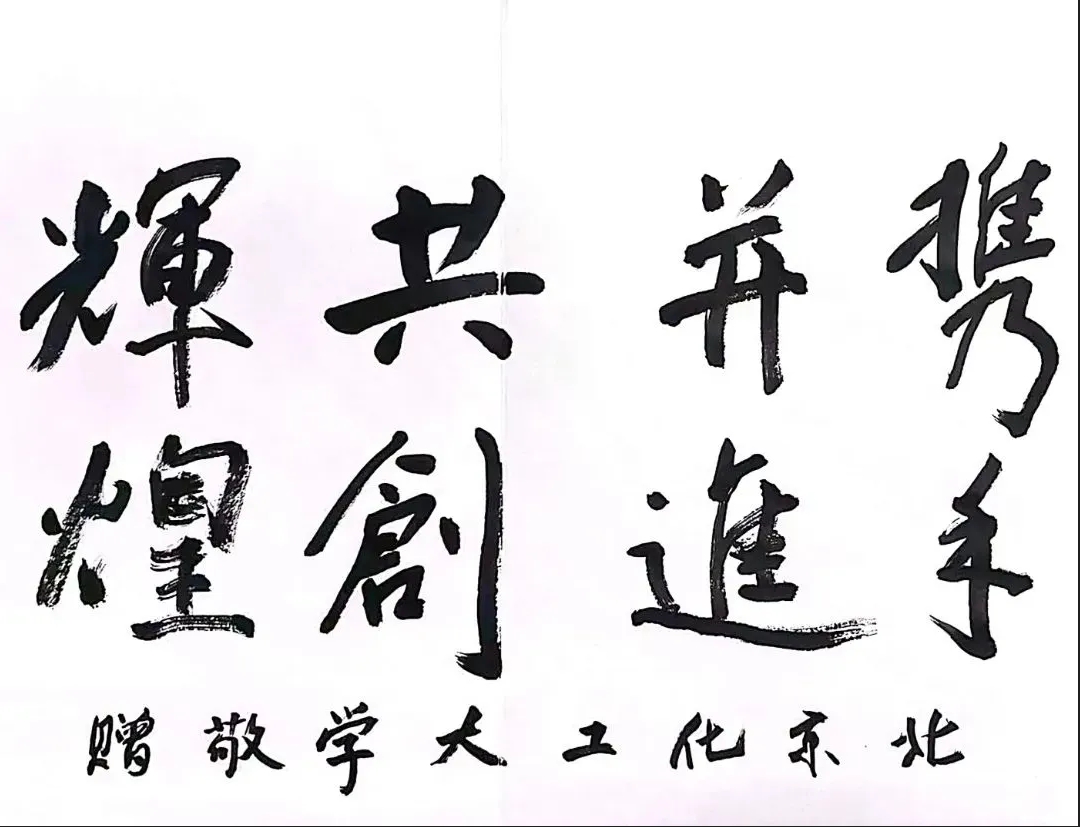 携手
并進
共創
輝煌
北京化工大学敬赠